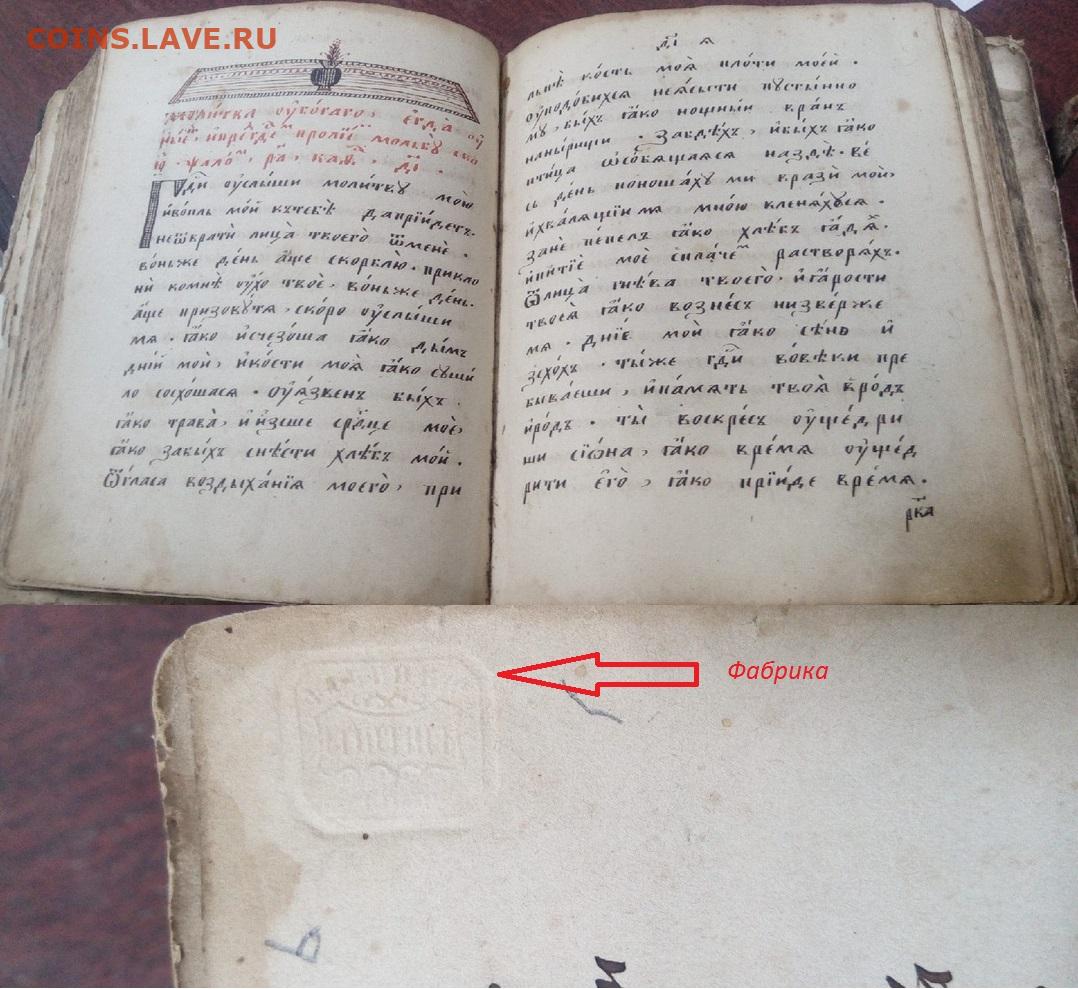 COINS.LAVE.RU
молитва оу҆бо́гаго, є҆гда̀ оу҆
ны́етъ, и҆ пред̾ гдⷭ҇емъ пролїе́тъ мольбу̀ сво
ю̀ · ѱало́мъ, ра҃, каѳ҇, д҃і ·
Гдⷭ҇и оу҆слы́ши моли́тву мою̀
и҆во́пль мо́й кътебѣ̀ дапрїи́детъ ·
неѿвратѝ лица̀ твоегѡ̀ ѿменѐ ·
во́ньже де́нь а҆́ще скорблю̀ · прикло
нѝ комнѣ̀ оу҆́хо твоѐ, во́ньже де́нь ·
а҆́ще призову́тѧ, ско́ро оу҆слы́ши
мѧ · ꙗ҆́ко и҆счезо́ша ꙗ҆́ко ды́мъ
дні́й мой, и҆ко́сти моѧ̀ ꙗ҆́ко суши́
ло сосхо́шасѧ · оу҆ѧ́звенъ бы́хъ ·
ꙗ҆́ко трава̀, и҆и҆́зсше срⷣце моѐ,
ꙗ҆́ко забы́хъ снѣ́сти хлѣ́бъ мо́й ·
ѿгласа воздыха́нїѧ моего̀, при
д҃і ѧ
льпѐ ко́сть моѧ̀ пло́ти мое́й ·
оу҆подо́бихсѧ неѧ́сыти пусты́нно
му, бы́хъ ꙗ҆́ко нощны́й вра́нъ
наны́рищи · забдѣ́хъ, и҆бы́хъ ꙗ҆́ко
пти́ца ѡ҆со́бѧщаѧсѧ наздѣ̀ · ве
сь де́нь поноша́ху ми вразѝ мой,
и҆хва́лѧщїимѧ мно́ю кленѧ́хусѧ ·
занѐ пе́пелъ ꙗ҆́ко хлѣ́бъ ꙗ҆дѧ́хъ ·
и҆питїѐ моѐ спла́чемъ растворѧ́хъ ·
ѿлица̀ гнѣ́ва твоегѡ̀, и҆ꙗ҆́рости
твоеѧ̀ ꙗ҆́ко вознесъ низве́рже
мѧ · дні́е мой ꙗ҆́ко сѣ́нь и҆
зсхо́хъ · ты́же гдⷭ҇и во́вѣки пре
быва́еши, и҆па́мѧть твоѧ̀ вро́дъ
и҆ро́дъ · ты̀ воскре́съ оу҆ще́дри
ши сїѡ́на, ꙗ҆́ко вре́мѧ оу҆ще́д
рити є҆гѡ̀, ꙗ҆́ко прїи́де вре́мѧ ·
рк҃а
Фабрика